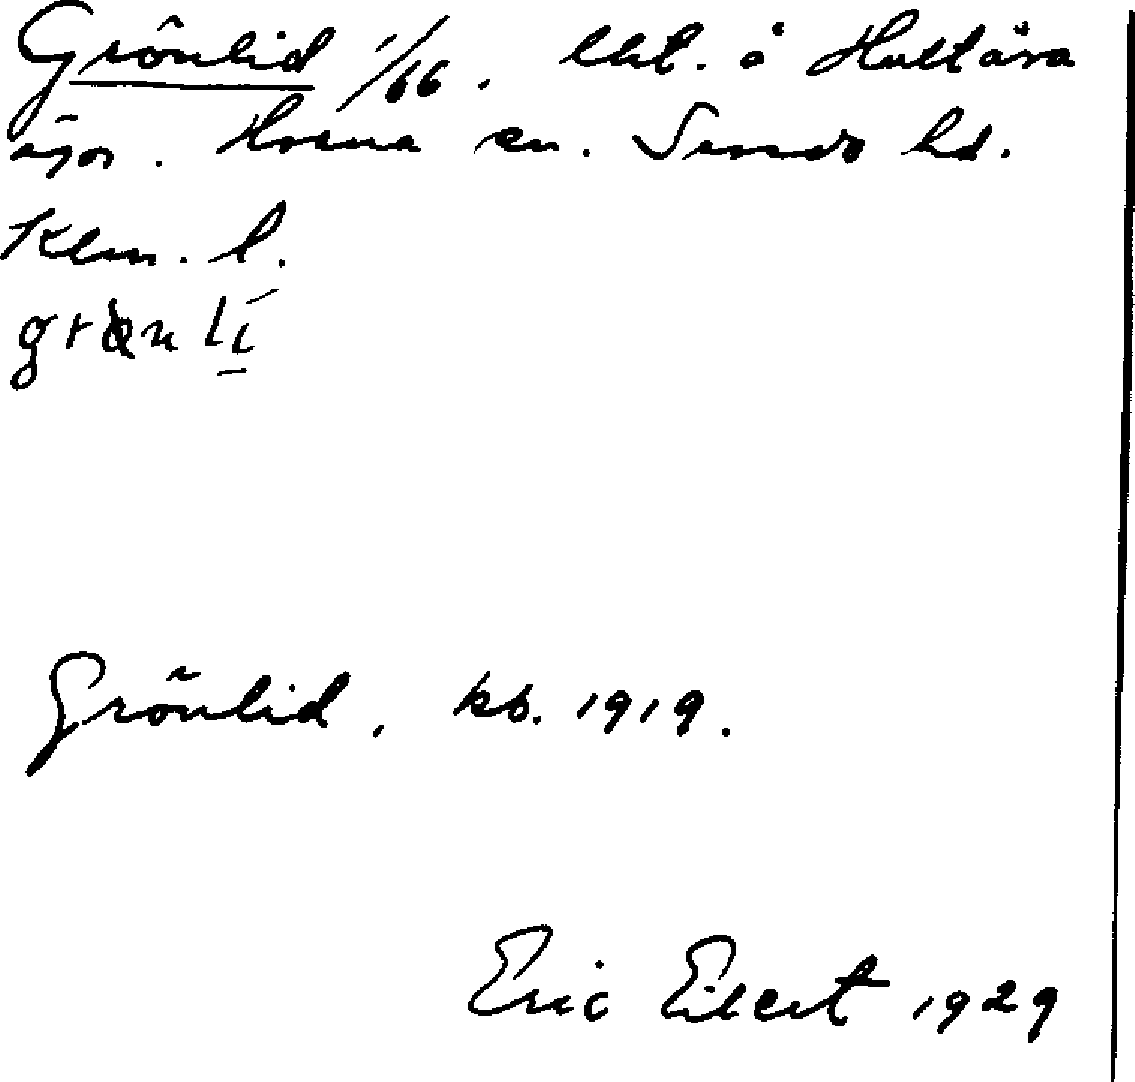 Grönlid 1/66. lht. å Hultåra
ägor. Horna sn. Sunds hd.
Klm. l.
grøn lí
Grönlid, kb. 1919.
Eric Elcert 1929